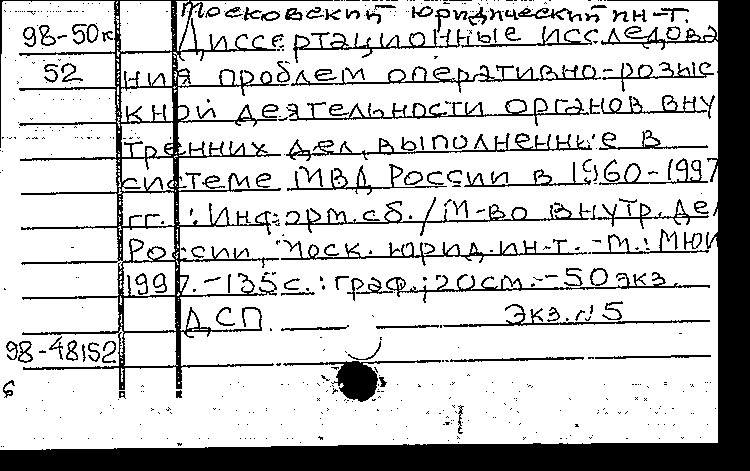 Московский юридический ин-т.
98-50к Диссертационные исследова
52 ния проблем оперативно-розыс
кной деятельности органов вну
тренних дел, выполненные в
системе МВД России в 1960-1997
гг. : Информ.сб. / М-во внутр. дел
России, Моск. юрид. ин-т. -М.: МЮИ
1997. -135с. : граф.; 20см. -50экз.
ДСП. Экз.N5
98-48152
6